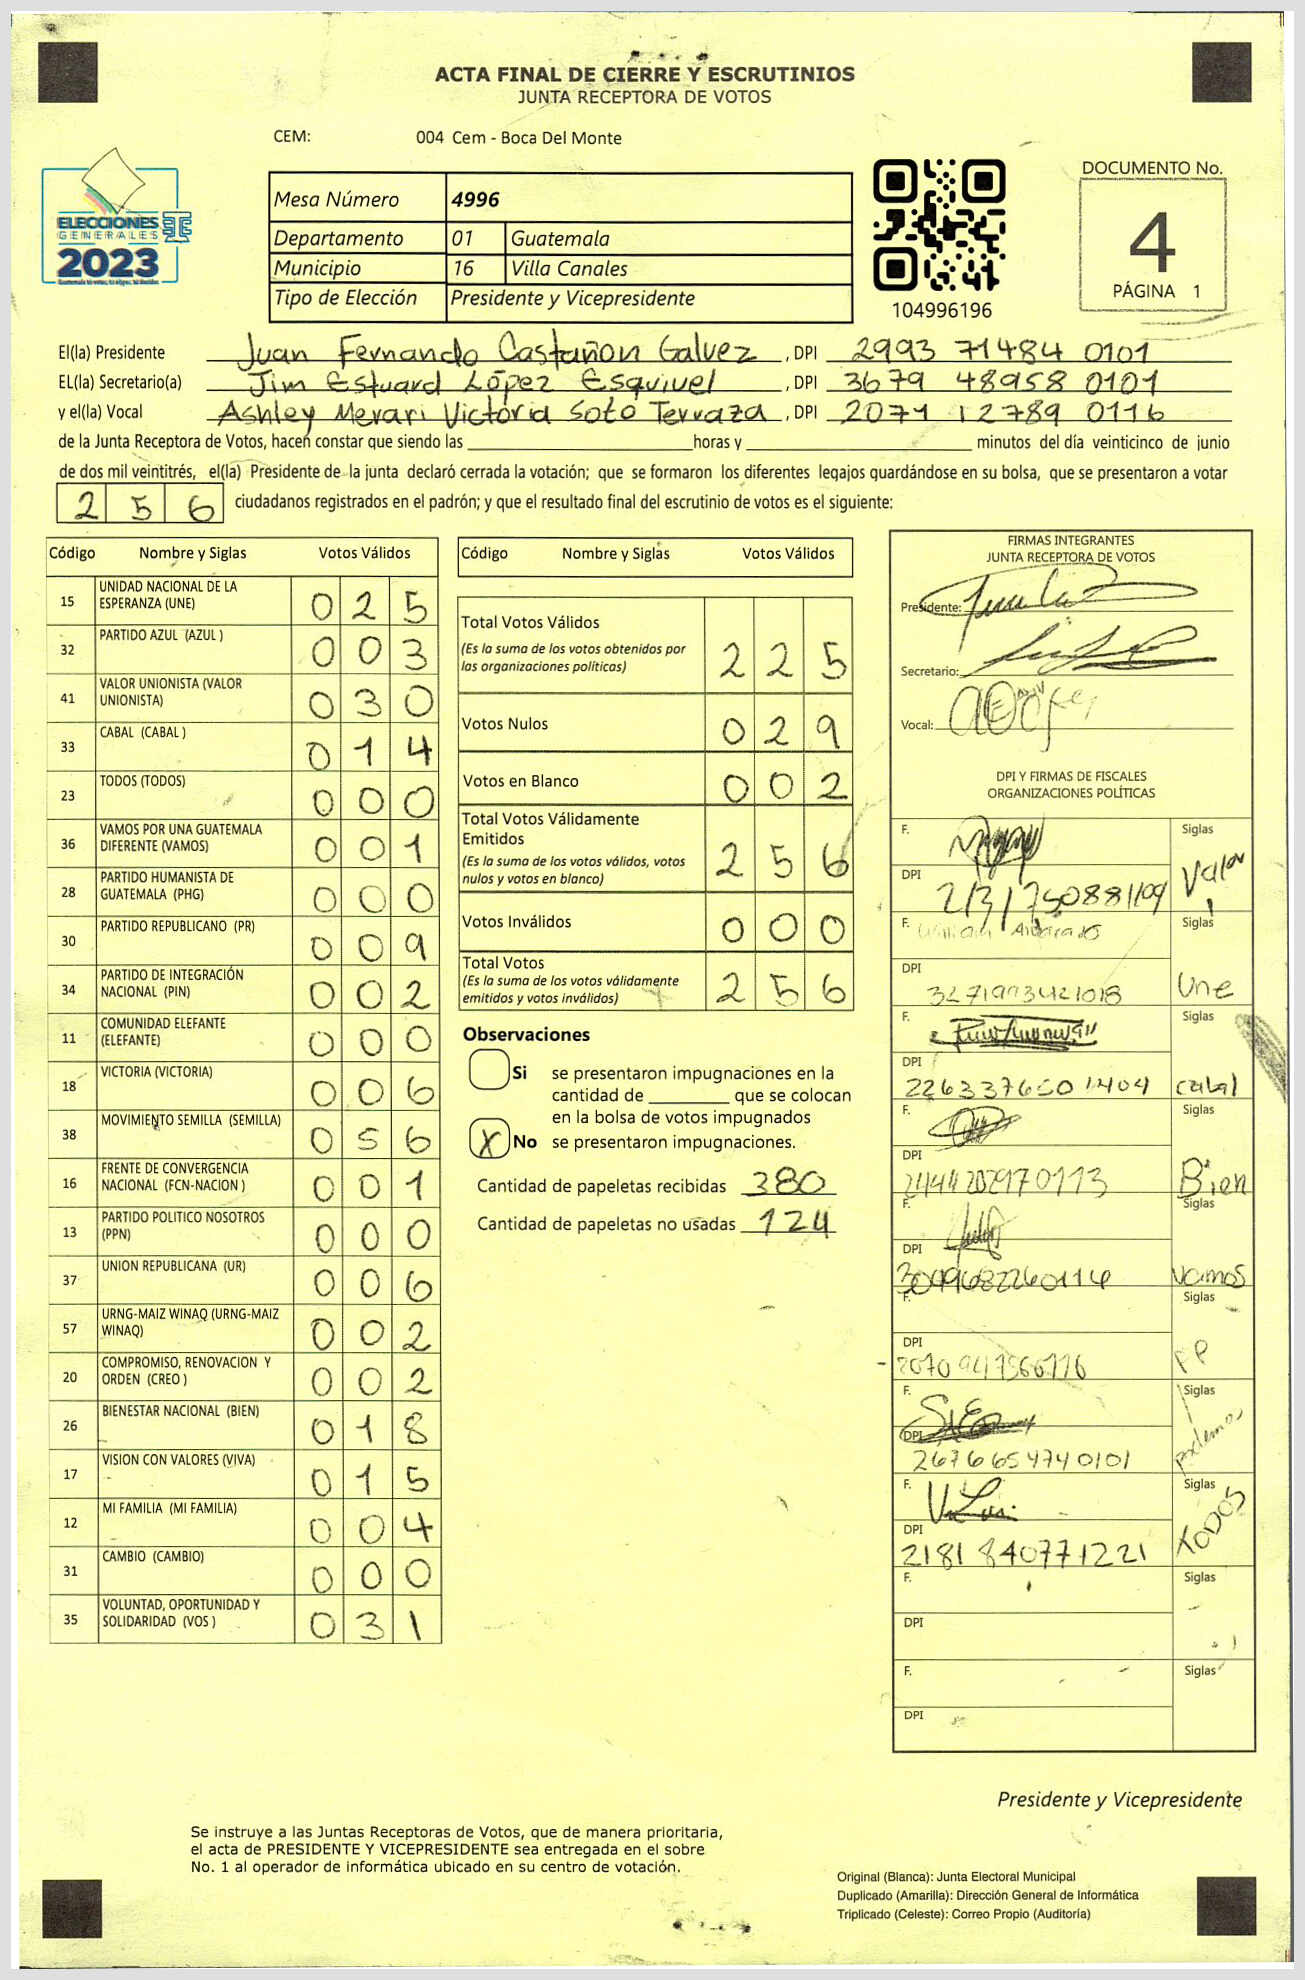 ACTA FINAL DE CIERRE Y ESCRUTINIOS
JUNTA RECEPTORA DE VOTOS
CEM: 004 Cem - Boca Del Monte
ELECCIONES
GENERALES
2023
Mesa Número 4996
Departamento 01 Guatemala
Municipio 16 Villa Canales
Tipo de Elección Presidente y Vicepresidente
104996196
DOCUMENTO No.
4
PÁGINA 1
El(la) Presidente Juan Fernando Castañon Galvez, DPI 2993 71484 0101
EL(la) Secretario(a) Jim Estuard López Esquivel, DPI 3679 48958 0101
y el(la) Vocal Ashley Merari Victoria Soto Terraza, DPI 2071 12789 0116
de la Junta Receptora de Votos, hacen constar que siendo las horas y minutos del día veinticinco de junio
de dos mil veintitrés, el(la) Presidente de la junta declaró cerrada la votación; que se formaron los diferentes legajos quardándose en su bolsa, que se presentaron a votar
256 ciudadanos registrados en el padrón; y que el resultado final del escrutinio de votos es el siguiente:
Código Nombre y Siglas Votos Válidos
15 UNIDAD NACIONAL DE LA ESPERANZA (UNE) 025
32 PARTIDO AZUL (AZUL ) 003
41 VALOR UNIONISTA (VALOR UNIONISTA) 030
33 CABAL (CABAL ) 014
23 TODOS (TODOS) 000
36 VAMOS POR UNA GUATEMALA DIFERENTE (VAMOS) 001
28 PARTIDO HUMANISTA DE GUATEMALA (PHG) 000
30 PARTIDO REPUBLICANO (PR) 009
34 PARTIDO DE INTEGRACIÓN NACIONAL (PIN) 002
11 COMUNIDAD ELEFANTE (ELEFANTE) 000
18 VICTORIA (VICTORIA) 006
38 MOVIMIENTO SEMILLA (SEMILLA) 056
16 FRENTE DE CONVERGENCIA NACIONAL (FCN-NACION ) 001
13 PARTIDO POLITICO NOSOTROS (PPN) 000
37 UNION REPUBLICANA (UR) 006
57 URNG-MAIZ WINAQ (URNG-MAIZ WINAQ) 002
20 COMPROMISO, RENOVACION Y ORDEN (CREO ) 002
26 BIENESTAR NACIONAL (BIEN) 018
17 VISION CON VALORES (VIVA) 015
12 MI FAMILIA (MI FAMILIA) 004
31 CAMBIO (CAMBIO) 000
35 VOLUNTAD, OPORTUNIDAD Y SOLIDARIDAD (VOS ) 031
Código Nombre y Siglas Votos Válidos
Total Votos Válidos 225
(Es la suma de los votos obtenidos por
las organizaciones políticas)
Votos Nulos 029
Votos en Blanco 002
Total Votos Válidamente
Emitidos 256
(Es la suma de los votos válidos, votos
nulos y votos en blanco)
Votos Inválidos 000
Total Votos 256
(Es la suma de los votos válidamente
emitidos y votos inválidos)
Observaciones
Si se presentaron impugnaciones en la
cantidad de que se colocan
en la bolsa de votos impugnados
X No se presentaron impugnaciones.
Cantidad de papeletas recibidas 380
Cantidad de papeletas no usadas 124
FIRMAS INTEGRANTES
JUNTA RECEPTORA DE VOTOS
Presidente:
Secretario:
Vocal:
DPI Y FIRMAS DE FISCALES
ORGANIZACIONES POLÍTICAS
F. Siglas Valor
DPI
F. Siglas Une
DPI
F. Siglas cabal
DPI 2263376501404
F. Siglas Bien
DPI
F. Siglas Vamos
DPI
F. Siglas PP
DPI
F. Siglas podemos
DPI 2676654740101
F. Siglas TODOS
DPI 2181840771221
F. Siglas
DPI
F. Siglas
DPI
Presidente y Vicepresidente
Se instruye a las Juntas Receptoras de Votos, que de manera prioritaria,
el acta de PRESIDENTE Y VICEPRESIDENTE sea entregada en el sobre
No. 1 al operador de informática ubicado en su centro de votación.
Original (Blanca): Junta Electoral Municipal
Duplicado (Amarilla): Dirección General de Informática
Triplicado (Celeste): Correo Propio (Auditoría)